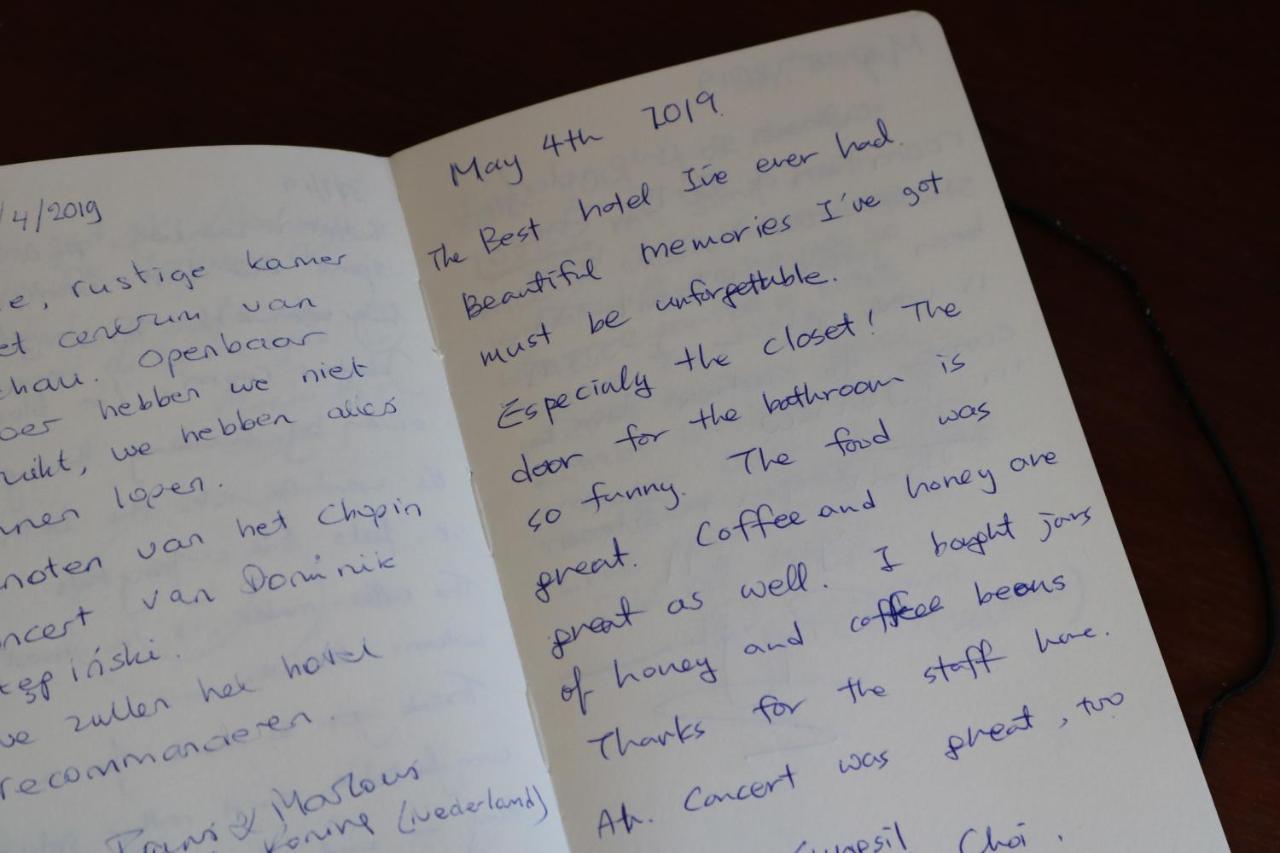 /4/2019
e, rustige kamer
et centrum van
chau. Openbaar
oer hebben we niet
ruikt, we hebben alles
nnen lopen.
noten van het Chopin
ncert van Dominik
tępiński.
we zullen het hotel
recommanderen.
& Marlous
Koning (Nederland)
May 4th 2019.
The Best hotel I've ever had.
Beautiful memories I've got
must be unforgettable.
Especialy the closet! The
door for the bathroom is
so funny. The food was
great. Coffee and honey are
great as well. I bought jars
of honey and coffee beans
Thanks for the staff here.
Ah. Concert was great, too
Choi.